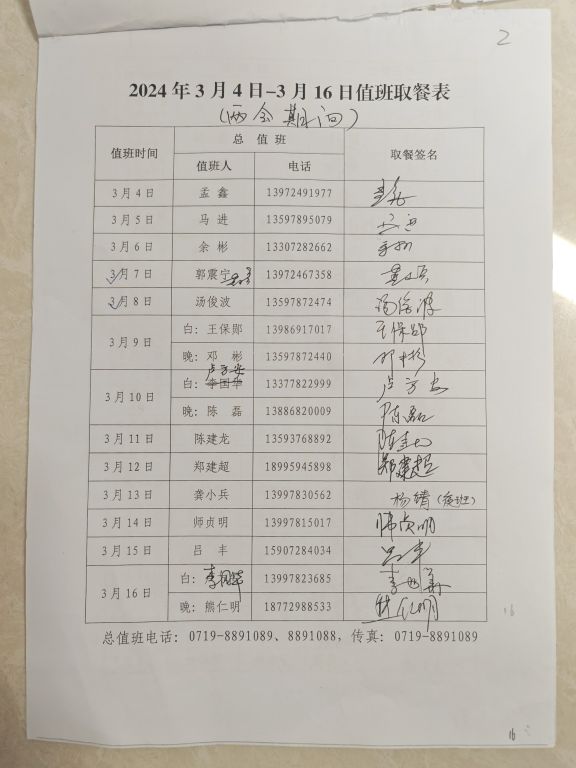 2
2024 年 3 月 4 日-3 月 16 日值班取餐表
(两会期间)
值班时间 总 值 班 取餐签名
值班人 电话
3 月 4 日 孟 鑫 13972491977
3 月 5 日 马 进 13597895079 马进
3 月 6 日 余 彬 13307282662
3 月 7 日 郭震宇 13972467358
3 月 8 日 汤俊波 13597872474 汤俊波
3 月 9 日 白: 王保郧 13986917017 王保郧
晚: 邓 彬 13597872440 邓彬
卢方安
3 月 10 日 白: 李国华 13377822999 卢方安
晚: 陈 磊 13886820009 陈磊
3 月 11 日 陈建龙 13593768892 陈建龙
3 月 12 日 郑建超 18995945898 郑建超
3 月 13 日 龚小兵 13997830562 杨婧 (值班)
3 月 14 日 师贞明 13997815017 师贞明
3 月 15 日 吕 丰 15907284034 吕丰
3 月 16 日 白: 13997823685
晚: 熊仁明 18772988533 熊仁明
总值班电话: 0719-8891089、8891088, 传真: 0719-8891089
16
16